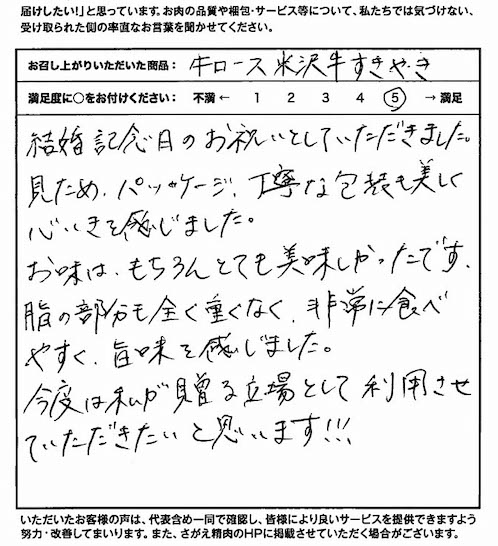 届けしたい!」と思っています。お肉の品質や梱包・サービス等について、私たちでは気づけない、
受け取られた側の率直なお言葉を聞かせてください。
お召し上がりいただいた商品: 牛ロース米沢牛すきやき
満足度に○をお付けください: 不満 ← 1 2 3 4 5 → 満足
結婚記念日のお祝いとしていただきました。
見ため、パッケージ、丁寧な包装も美しく
心いきを感じました。
お味は、もちろんとても美味しかったです。
脂の部分も全く重くなく、非常に食べ
やすく、旨味を感じました。
今度は私が贈る立場として利用させ
ていただきたいと思います!!!
いただいたお客様の声は、代表含め一同で確認し、皆様により良いサービスを提供できますよう
努力・改善してまいります。また、さがえ精肉のHPに掲載させていただく場合がございます。